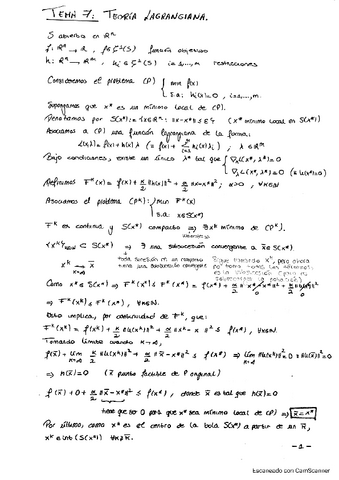 TEMA 7: TEORÍA LAGRANGIANA.
S abierto en ℝⁿ
f: ℝⁿ → ℝ, f ∈ ζ¹(S) función objetivo
h: ℝⁿ → ℝᵐ, hᵢ ∈ ζ¹(S) i=1,...,m restricciones
Consideremos el problema (P) { min f(x)
s.a: hᵢ(x) = 0, i=1,...,m.
Supongamos que x* es un mínimo local de (P).
Denotamos por S(x*) = {x ∈ ℝⁿ: ‖x-x*‖ ≤ ε} (x* mínimo local en S(x*))
Asociamos a (P) una función lagrangiana de la forma:
L(x,λ) = f(x) + h(x)λ (= f(x) + Σ hᵢ(x)λᵢ), λ ∈ ℝᵐ
Bajo condiciones, existe un único λ* tal que { ∇ₓL(x*,λ*) = 0
∇_λL(x*,λ*) = 0 (≡ h(x*) = 0)
Definimos Fᵏ(x) = f(x) + k/2 ‖h(x)‖² + α/2 ‖x-x*‖², α>0, ∀k∈ℕ
Asociamos el problema (Pᵏ): { min Fᵏ(x)
s.a: x ∈ S(x*)
Fᵏ es continua y S(x*) compacto ⇒ ∃ xᵏ mínimo de (Pᵏ).
{xᵏ}k∈ℕ ⊂ S(x*) → ∃ una subsucesión convergente a x̄ ∈ S(x*)
toda sucesión en un compacto
tiene una subsucesión convergente
xᵏ → x̄
k→∞
Como xᵏ ∈ S(x*) ⇒ Fᵏ(xᵏ) ≤ Fᵏ(x*) = f(x*) + k/2 ‖h(x*)‖² + α/2 ‖x*-x*‖²
⇒ Fᵏ(xᵏ) ≤ Fᵏ(x*), ∀k∈ℕ.
Esto implica, por continuidad de Fᵏ, que:
Fᵏ(xᵏ) = f(xᵏ) + k/2 ‖h(xᵏ)‖² + α/2 ‖xᵏ - x*‖² ≤ f(x*), ∀k∈ℕ.
Tomando límite cuando k→∞,
f(x̄) + lím k/2 ‖h(xᵏ)‖² + α/2 ‖x̄-x*‖² ≤ f(x*) ⇒ lím ‖h(xᵏ)‖² = 0 = ‖h(x̄)‖² = 0
⇒ h(x̄) = 0 (x̄ punto factible de P original)
f(x̄) + 0 + α/2 ‖x̄-x*‖² ≤ f(x*), donde x̄ es tal que h(x̄) = 0
tiene que ser 0 para que x* sea mínimo local de (P) ⇒ x̄ = x*
Por último, como x* es el centro de la bola S(x*) a partir de un k̄,
xᵏ ∈ int (S(x*)) ∀k ≥ k̄.
- 1 -
Escaneado con CamScanner